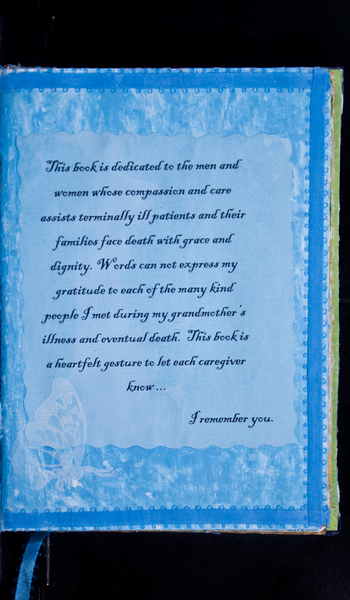 This book is dedicated to the men and
women whose compassion and care
assists terminally ill patients and their
families face death with grace and
dignity. Words can not express my
gratitude to each of the many kind
people I met during my grandmother's
illness and eventual death. This book is
a heartfelt gesture to let each caregiver
know...
I remember you.